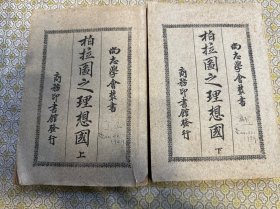 尚志學會叢書
柏拉圖之理想國
上
商務印書館發行
尚志學會叢書
柏拉圖之理想國
下
商務印書館發行